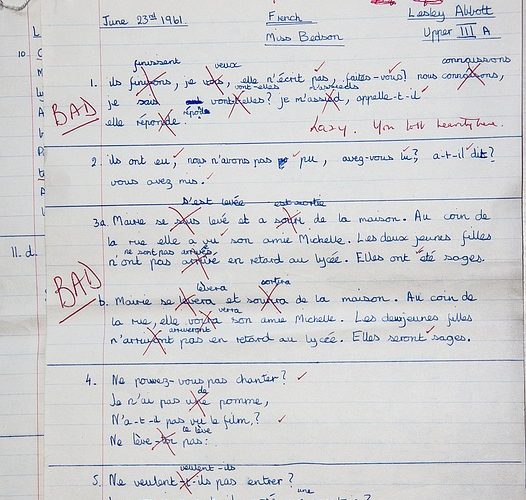 June 23rd 1961. French Lesley Abbott
Miss Bedson Upper III A
finissent veux connaissons
1. ils finirons, je vous, elle n'écrit pas, faites-vous? nous connaissons,
vont-elles m'assieds
je sais vont-elles? je m'assied, appelle-t-il
BAD
répond
elle réponde.
Lazy. You lost heavily here.
2. ils ont eu, nous n'avons pas pu, avez-vous lu? a-t-il dit?
vous avez mis.
s'est levée est sortie
3a. Marie se suis levé et a souri de la maison. Au coin de
la rue elle a vu son amie Michelle. Les deux jeunes filles
ne sont pas arrivés
n'ont pas arrivé en retard au lycée. Elles ont été sages.
BAD
lèvera sortira
b. Marie se levera et sourira de la maison. Au coin de
verra
la rue, elle voira son amie Michelle. Les deux jeunes filles
arriveront
n'arriveront pas en retard au lycée. Elles seront sages.
4. Ne pouvez-vous pas chanter?
de
Je n'ai pas une pomme,
N'a-t-il pas vu le film?
te lève
Ne lève-toi pas.
veulent-ils
5. Ne veulent-t-ils pas entrer?
une
10.
11. d.